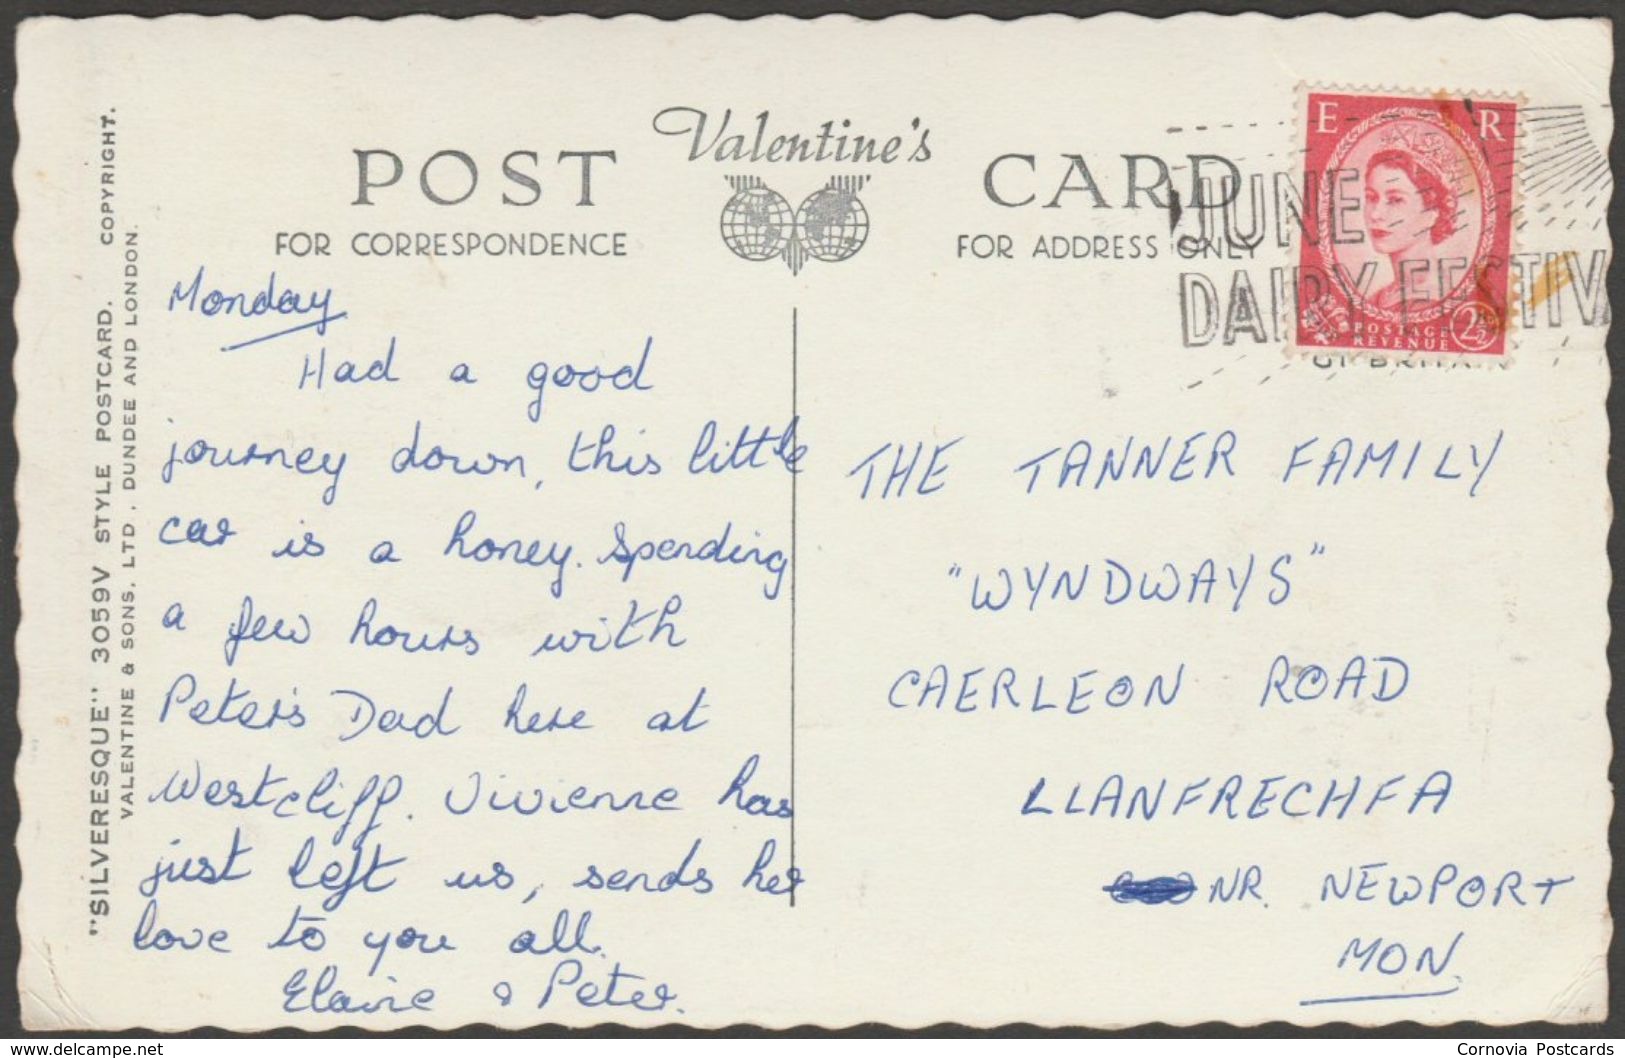 "SILVERESQUE" 3059V STYLE POSTCARD. COPYRIGHT.
VALENTINE & SONS, LTD., DUNDEE AND LONDON.
Valentine's
POST CARD
FOR CORRESPONDENCE
FOR ADDRESS ONLY
E R
POSTAGE REVENUE 2½
JUNE
DAIRY FESTIVA
Monday
Had a good
journey down, this little
car is a honey. Spending
a few hours with
Peter's Dad here at
Westcliff. Vivienne has
just left us, sends her
love to you all.
Elaine & Peter.
THE TANNER FAMILY
"WYNDWAYS"
CAERLEON ROAD
LLANFRECHFA
NR. NEWPORT
MON.
www.delcampe.net
Cornovia Postcards